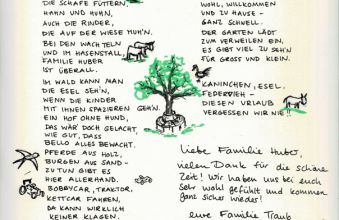 DIE SCHAFE FÜTTERN,
HAHN UND HUHN,
AUCH DIE RINDER,
DIE AUF DER WIESE MUH'N.
BEI DEN WACHTELN
UND IM HASENSTALL,
FAMILIE HUBER
IST ÜBERALL.
IM WALD KANN MAN
DIE ESEL SEH'N,
WENN DIE KINDER
MIT IHNEN SPAZIEREN GEH'N.
EIN HOF OHNE HUND,
DAS WÄR' DOCH GELACHT,
WIE GUT, DASS
BELLO ALLES BEWACHT.
PFERDE AUS HOLZ,
BURGEN AUS SAND-
ZU TUN GIBT ES
HIER ALLERHAND.
BOBBYCAR, TRAKTOR,
KETTCAR FAHREN,
DA KANN WIRKLICH
KEINER KLAGEN.
WOHL, WILLKOMMEN
UND ZU HAUSE -
GANZ SCHNELL.
DER GARTEN LÄDT
ZUM VERWEILEN EIN,
ES GIBT VIEL ZU SEH'N
FÜR GROSS UND KLEIN.
KANINCHEN, ESEL,
FEDERVIEH -
DIESEN URLAUB
VERGESSEN WIR NIE!!
Liebe Familie Huber,
vielen Dank für die schöne
Zeit! Wir haben uns bei euch
sehr wohl gefühlt und kommen
ganz sicher wieder!
eure Familie Traub